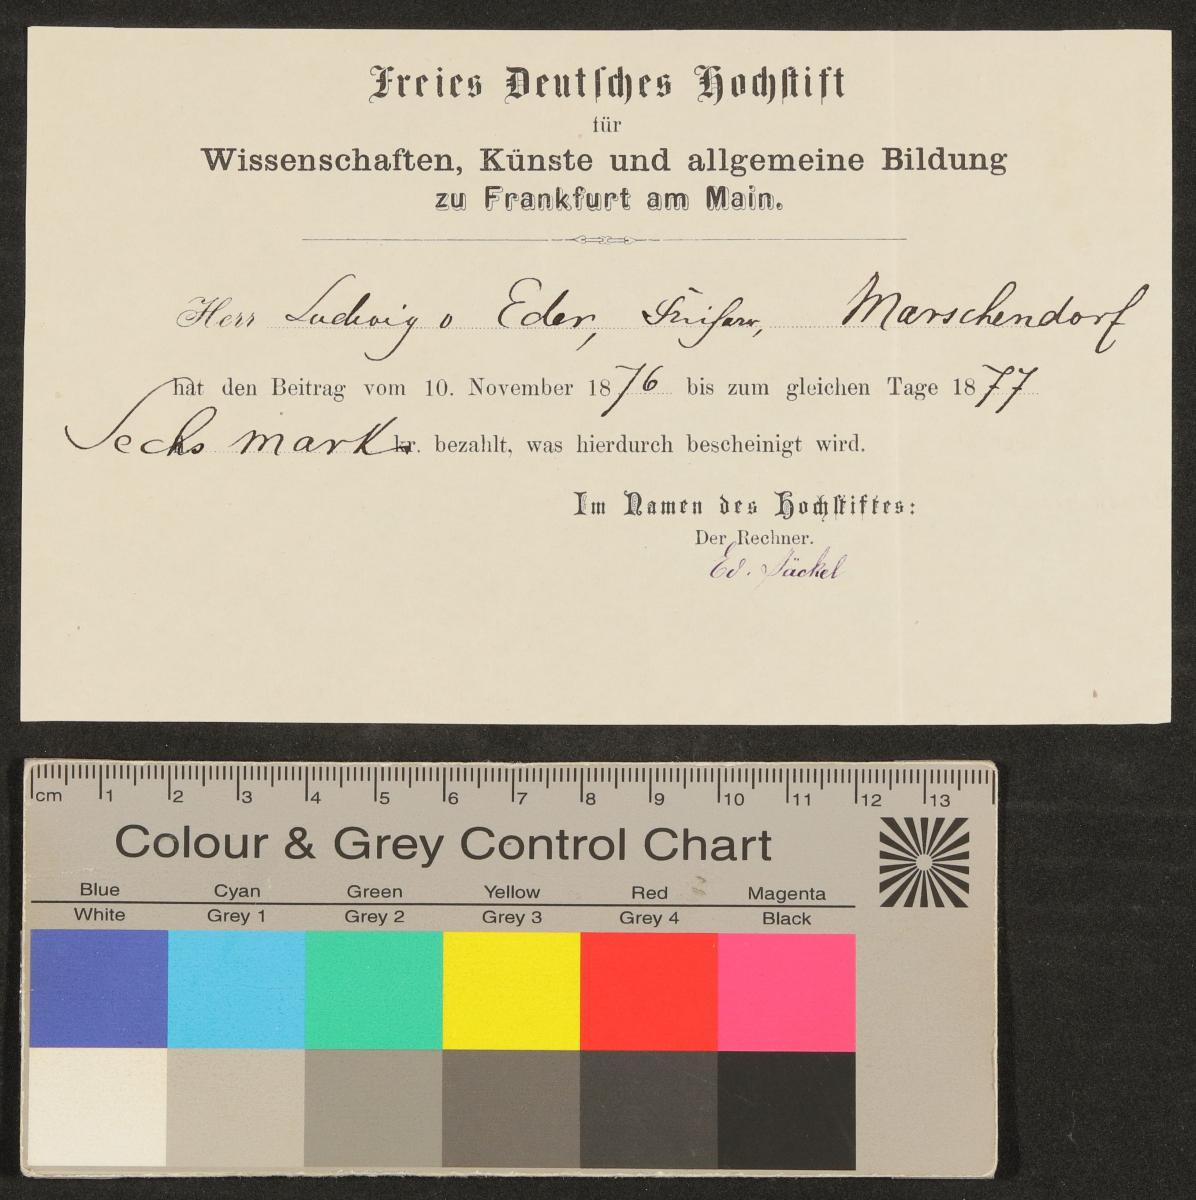 Freies Deutsches Hochstift
für
Wissenschaften, Künste und allgemeine Bildung
zu Frankfurt am Main.
Herr Ludwig v Eder, Marschendorf
hat den Beitrag vom 10. November 1876 bis zum gleichen Tage 1877
Sechs Mark kr. bezahlt, was hierdurch bescheinigt wird.
Im Namen des Hochstiftes:
Der Rechner.
Ed. Jäckel
cm 1 2 3 4 5 6 7 8 9 10 11 12 13
Colour & Grey Control Chart
Blue Cyan Green Yellow Red Magenta
White Grey 1 Grey 2 Grey 3 Grey 4 Black